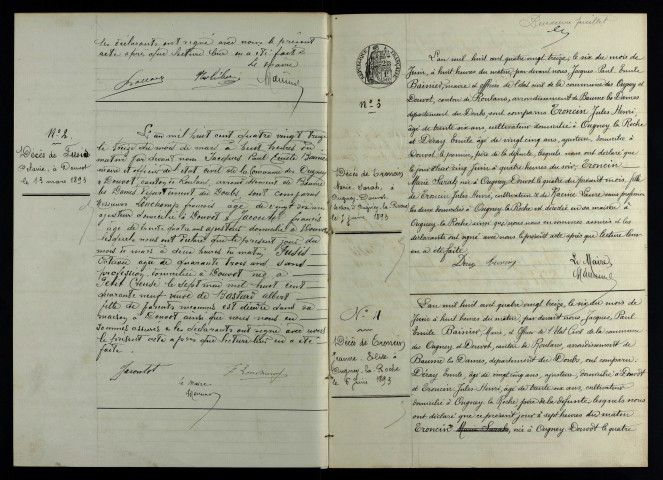 les déclarants ont signé avec nous le présent
acte après que lecture leur en a été faite
le Maire
N° 2
Décès de Fusié
Octavie, à Douvot
le 13 mars 1893
L'an mil huit cent quatre vingt treize
le treize du mois de mars à huit heures du
matin par devant nous Jacques Paul Emile Bainier
maire et officier de l'état civil de la commune de Ougney
Douvot, canton de Roulans arrondissement de Baume
les Dames département du Doubs sont comparus
Louchamp françois âgé de vingt
domicilié à Douvot et Jacoutot françois
âgé de trente quatre ans ajusteur domicilié à
lesquels nous ont déclaré que le présent jour du
mois de mars à deux heures du matin, Fusié
Octavie âgée de quarante trois ans sans
profession domiciliée à Douvot née à
Petit Creuse le sept mai mil huit cent
quarante neuf veuve de Bastard albert
fille de parents inconnus est décédée dans sa
maison à Douvot ainsi que nous nous en
sommes assurés et les déclarants ont signé avec nous
le présent acte après que lecture leur en a été
faite.
Jacoutot
le Maire
N° 3
Décès de Eroncin
Marie, Sarah, à
Ougney-Douvot
le 7 juin 1893
L'an mil huit cent quatre vingt treize, le six du mois de
Juin, à huit heures du matin, par devant nous Jacques Paul Emile
Bainier, maire et officier de l'état civil de la commune de Ougney et
Douvot, canton de Roulans, arrondissement de Baume les Dames
département du Doubs, sont comparus Eroncin Jules Henri,
âgé de trente six ans, cultivateur domicilié à Ougney la Roche
et Déray Emile âgé de vingt cinq ans, ajusteur, domicilié à
Douvot, le premier, père de la défunte, lesquels nous ont déclaré que
le jour d'hier cinq Juin à quatre heures du soir, Eroncin
Marie Sarah, née à Ougney Douvot le quatre du présent mois, fille
de Eroncin Jules Henri, cultivateur et de Racine Laure sans profession
les deux domiciliés à Ougney la Roche est décédée en sa maison à
Ougney la Roche ainsi que nous nous en sommes assurés et les
déclarants ont signé avec nous le présent acte après que lecture leur
en a été faite.
Le Maire,
N° 4
Décès de Eroncin
Jeanne, Elise à
Ougney-la-Roche
le 6 juin 1893
L'an mil huit cent quatre vingt treize, le six du mois de
Juin à huit heures du matin, par devant nous, Jacques, Paul
Emile Bainier, Maire, et officier de l'état Civil de la commune
de Ougney et Douvot, canton de Roulans, arrondissement de
Baume les Dames, département du Doubs, ont comparu
Déray Emile, âgé de vingt cinq ans, ajusteur, domicilié à Douvot
et Eroncin Jules Henri, âgé de trente six ans, cultivateur
domicilié à Ougney la Roche, père de la défunte, lesquels nous
ont déclaré que ce présent jour à sept heures du matin
Eroncin Marie Sarah, née à Ougney Douvot le quatre